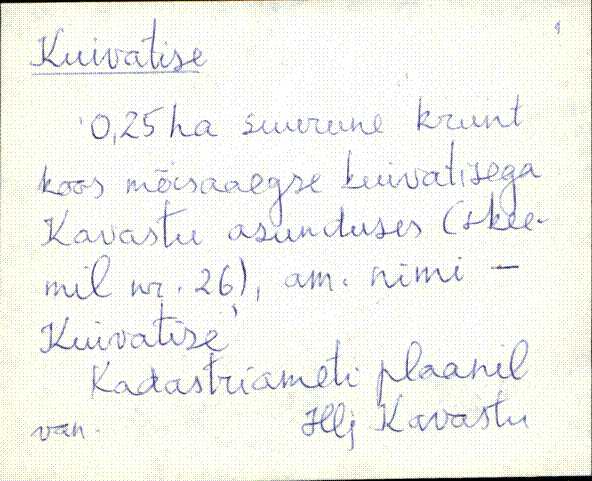 1
Kuivatise
0,25 ha suurune krunt
koos mõisaaegse kuivatisega
Kavastu asunduses (skee-
mil nr. 26), am. nimi –
Kuivatise
Kadastriameti plaanil
van. Hlj Kavastu